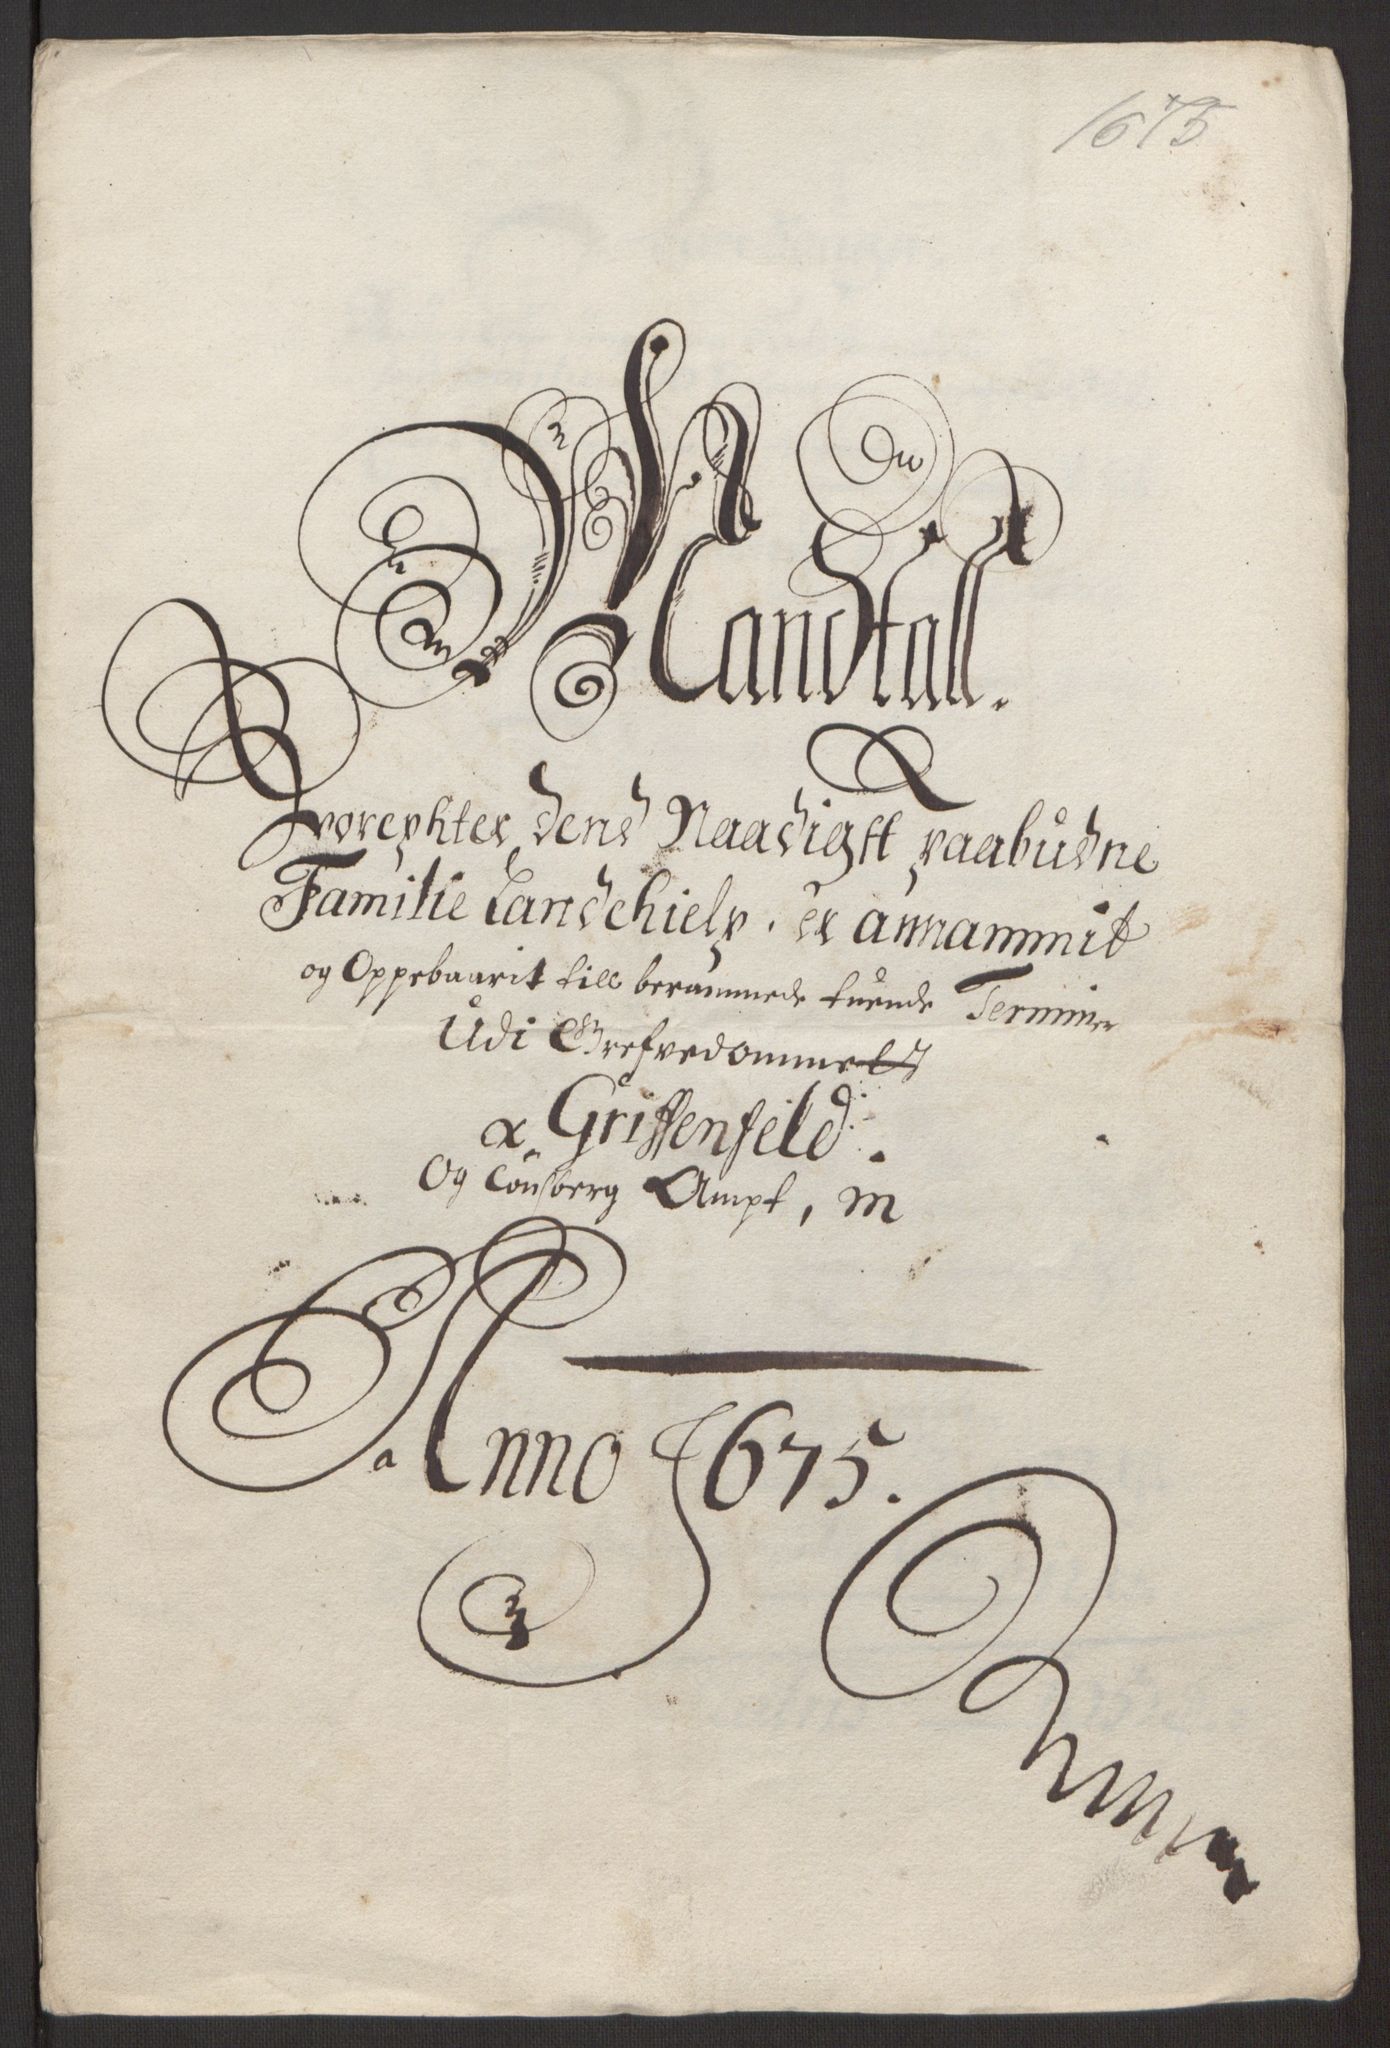 1675
Mandtall.
Hvorephter dend Naadigst paabudne
Familie Landehielp. er annammit
og Oppebaarit till berammede tuende Terminer
Udi Grefvedommet
Griffenfeld.
Og Tönsberg Ampt,
Anno 1675.